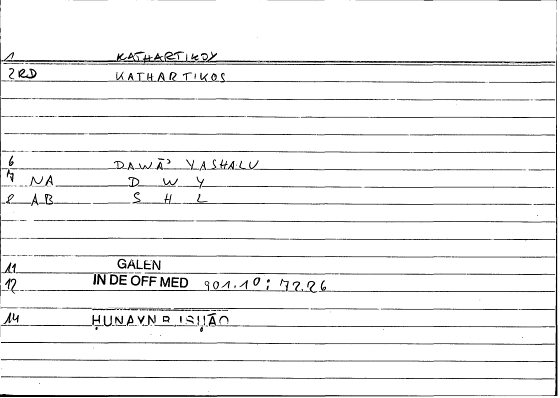 1 KATHARTIKOY
2 RD KATHARTIKOS
6 DAWĀʾ YASHALU
7 NA D W Y
8 AB S H L
11 GALEN
12 IN DE OFF MED 901.10; 72.26
14 ḤUNAYN B. ISḤĀQ